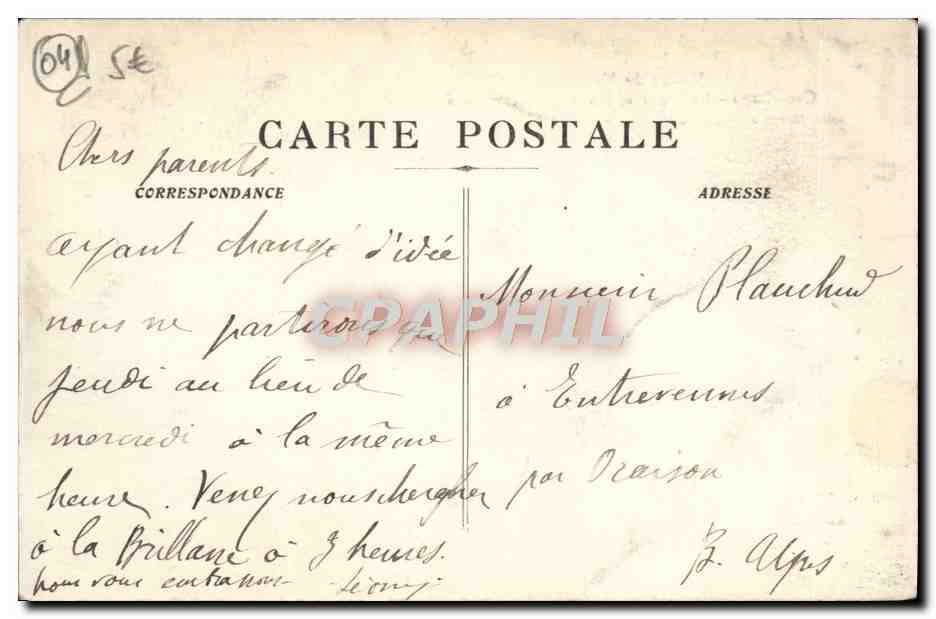 04 5€
CARTE POSTALE
Chers parents.
CORRESPONDANCE
ayant changé d'idée
nous ne partirons que
jeudi au lieu de
mercredi à la même
heure. Venez nous chercher
à la Brillane à 3 heures.
nous vous embrassons
ADRESSE
Monsieur Plauchud
à Entrevennes
par Oraison
B. Alpes
CPAPHIL